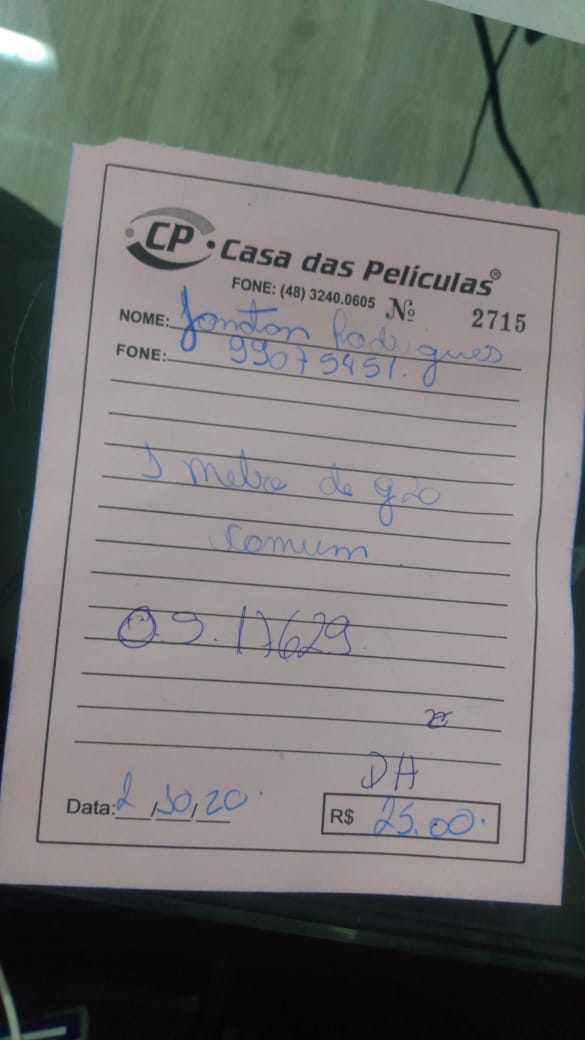 CP • Casa das Películas®
FONE: (48) 3240.0605 Nº 2715
NOME: Jonatan Rodrigues
FONE: 99075451.
1 metro de g20
comum.
O.S. 17629.
DH
Data: 2/10/20. R$ 25.00.